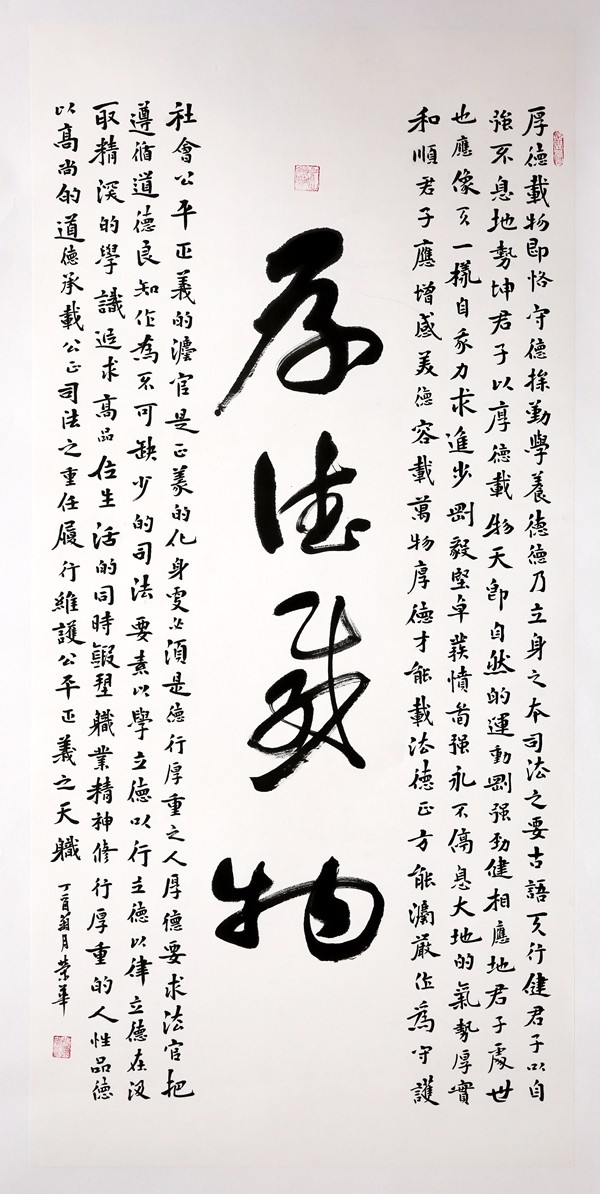 厚德載物即恪守德操勤學養德德乃立身之本司法之要古語天行健君子以自
強不息地勢坤君子以厚德載物天即自然的運動剛强勁健相應地君子處世
也應像天一樣自我力求進步剛毅堅卓發憤啚强永不停息大地的氣勢厚實
和順君子應增盛美德容載萬物厚德才能載法德正方能灋嚴作為守護
厚德載物
社會公平正義的灋官是正義的化身更必須是德行厚重之人厚德要求法官把
遵循道德良知作為不可缺少的司法要素以學立德以行立德以律立德在汲
取精深的學識追求高品位生活的同時鍛塑職業精神修行厚重的人性品德
以高尚的道德承載公正司法之重任履行維護公平正義之天職
丁酉月榮華